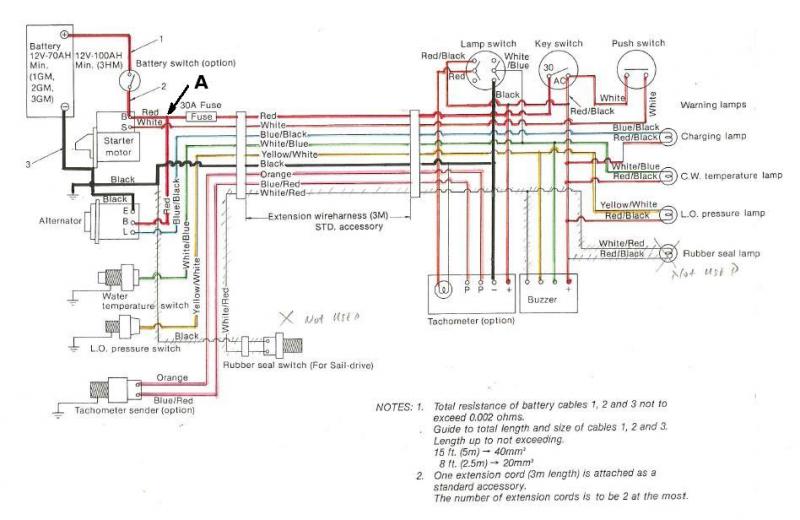 Battery
12V-70AH
Min.
(1GM,
2GM,
3GM)
12V-100AH
Min. (3HM)
1
Battery switch (option)
2
A
30A Fuse
Fuse
B
Red
S
White
Starter
motor
3
Black
Black
Alternator
E
B
L
Red
Blue/Black
White/Blue
Yellow/White
White/Red
Red
White
Blue/Black
White/Blue
Yellow/White
Black
Orange
Blue/Red
White/Red
Extension wireharness (3M)
STD. accessory
Water
temperature switch
L.O. pressure switch
Black
X Not Used
Rubber seal switch (For Sail-drive)
Orange
Blue/Red
Tachometer sender (option)
Lamp switch
Key switch
Push switch
Red/Black
Red
White
/Blue
30
AC
White
Red/Black
White
Warning lamps
Blue/Black
Red/Black
Charging lamp
White/Blue
Red/Black
C.W. temperature lamp
Yellow/White
Red/Black
L.O. pressure lamp
White/Red
Red/Black
Rubber seal lamp
Not Used
P P − +
− +
Tachometer (option)
Buzzer
NOTES: 1. Total resistance of battery cables 1, 2 and 3 not to
exceed 0.002 ohms.
Guide to total length and size of cables 1, 2 and 3.
Length up to not exceeding.
15 ft. (5m) → 40mm²
8 ft. (2.5m) → 20mm²
2. One extension cord (3m length) is attached as a
standard accessory.
The number of extension cords is to be 2 at the most.